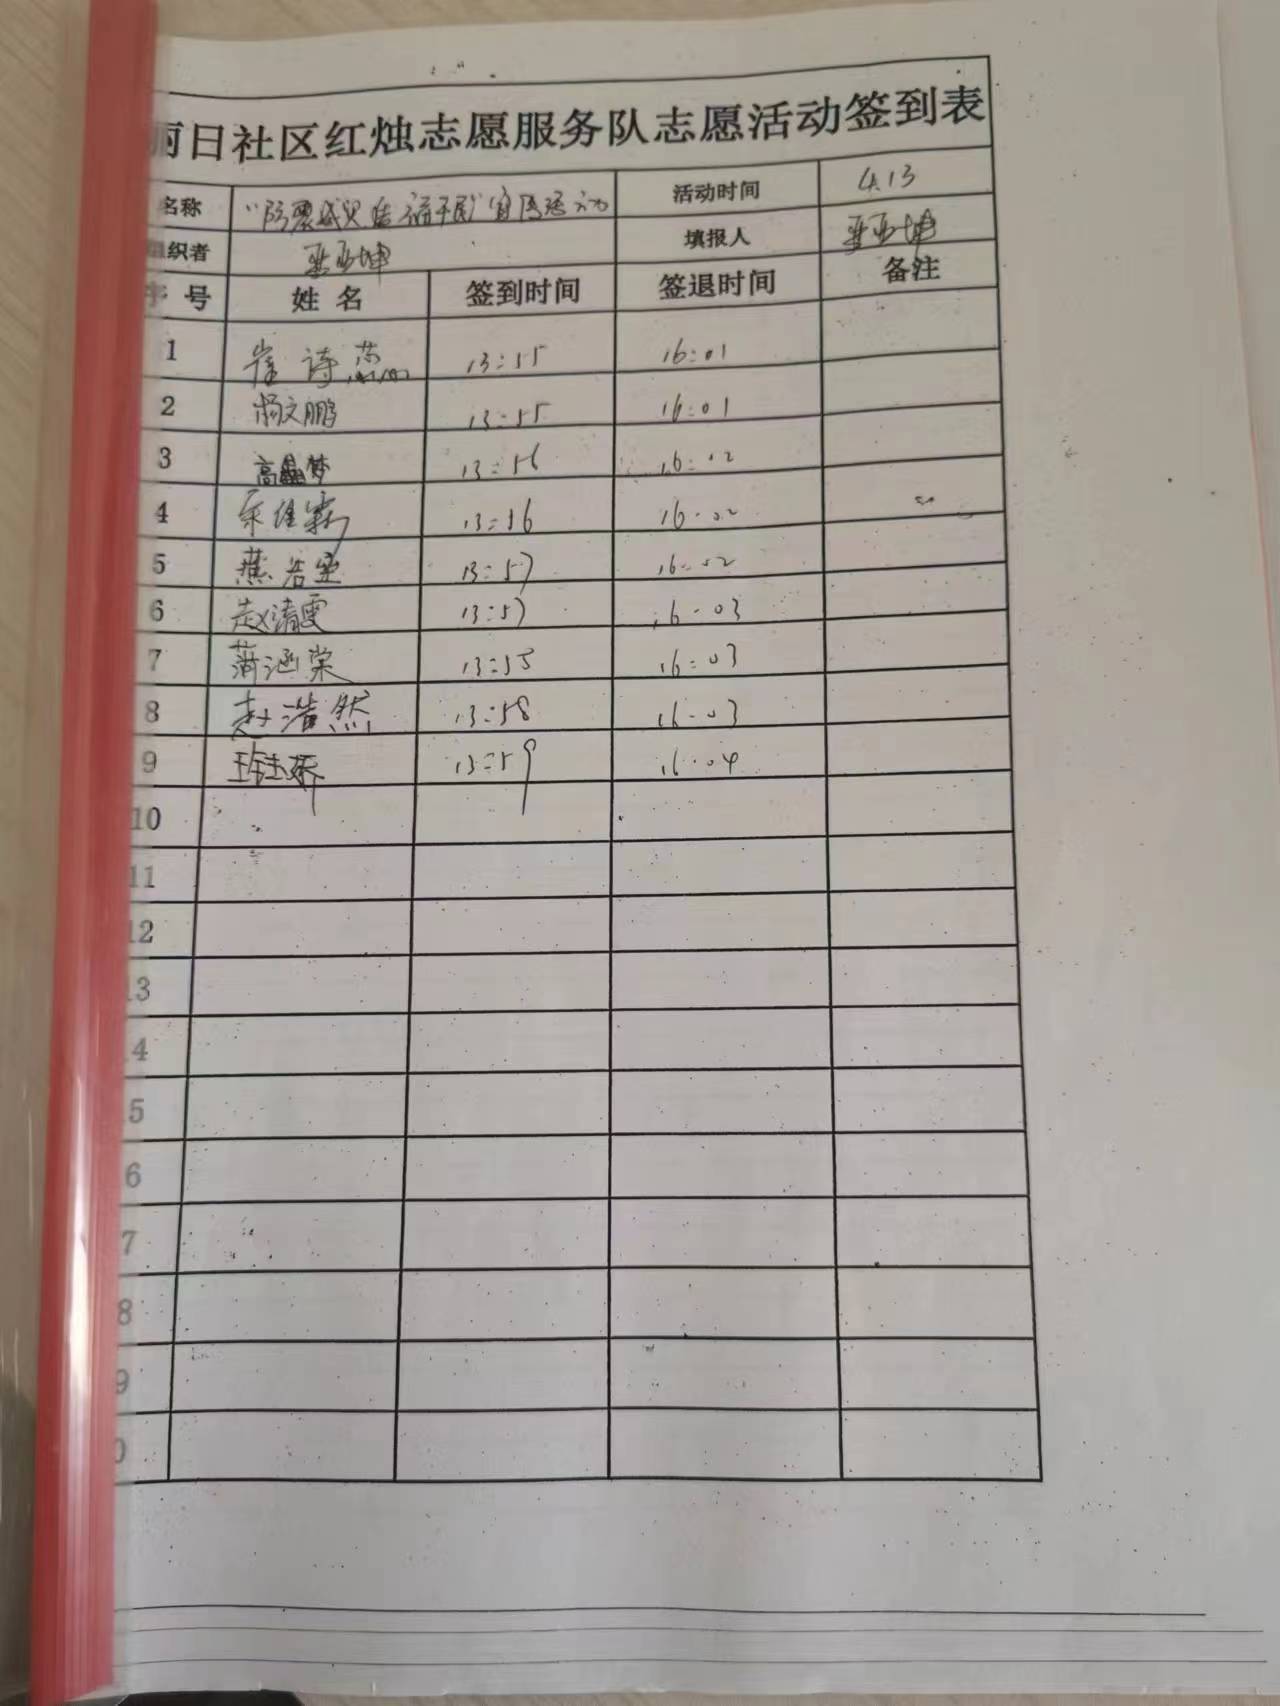 丽日社区红烛志愿服务队志愿活动签到表
名称 "防震减灾 活动 活动时间 4.13
组织者 亚坤 填报人 亚坤
序号 姓名 签到时间 签退时间 备注
1 崔诗 13:55 16:01
2 杨文鹏 13:55 16:01
3 高 梦 13:56 16:02
4 13:56 16:02
5 燕 13:57 16:02
6 赵清雯 13:57 16:03
7 涵棠 13:55 16:03
8 赵浩然 13:58 16:03
9 王 娇 13:59 16:04
10
11
12
13
14
5
6
7
8
9
0